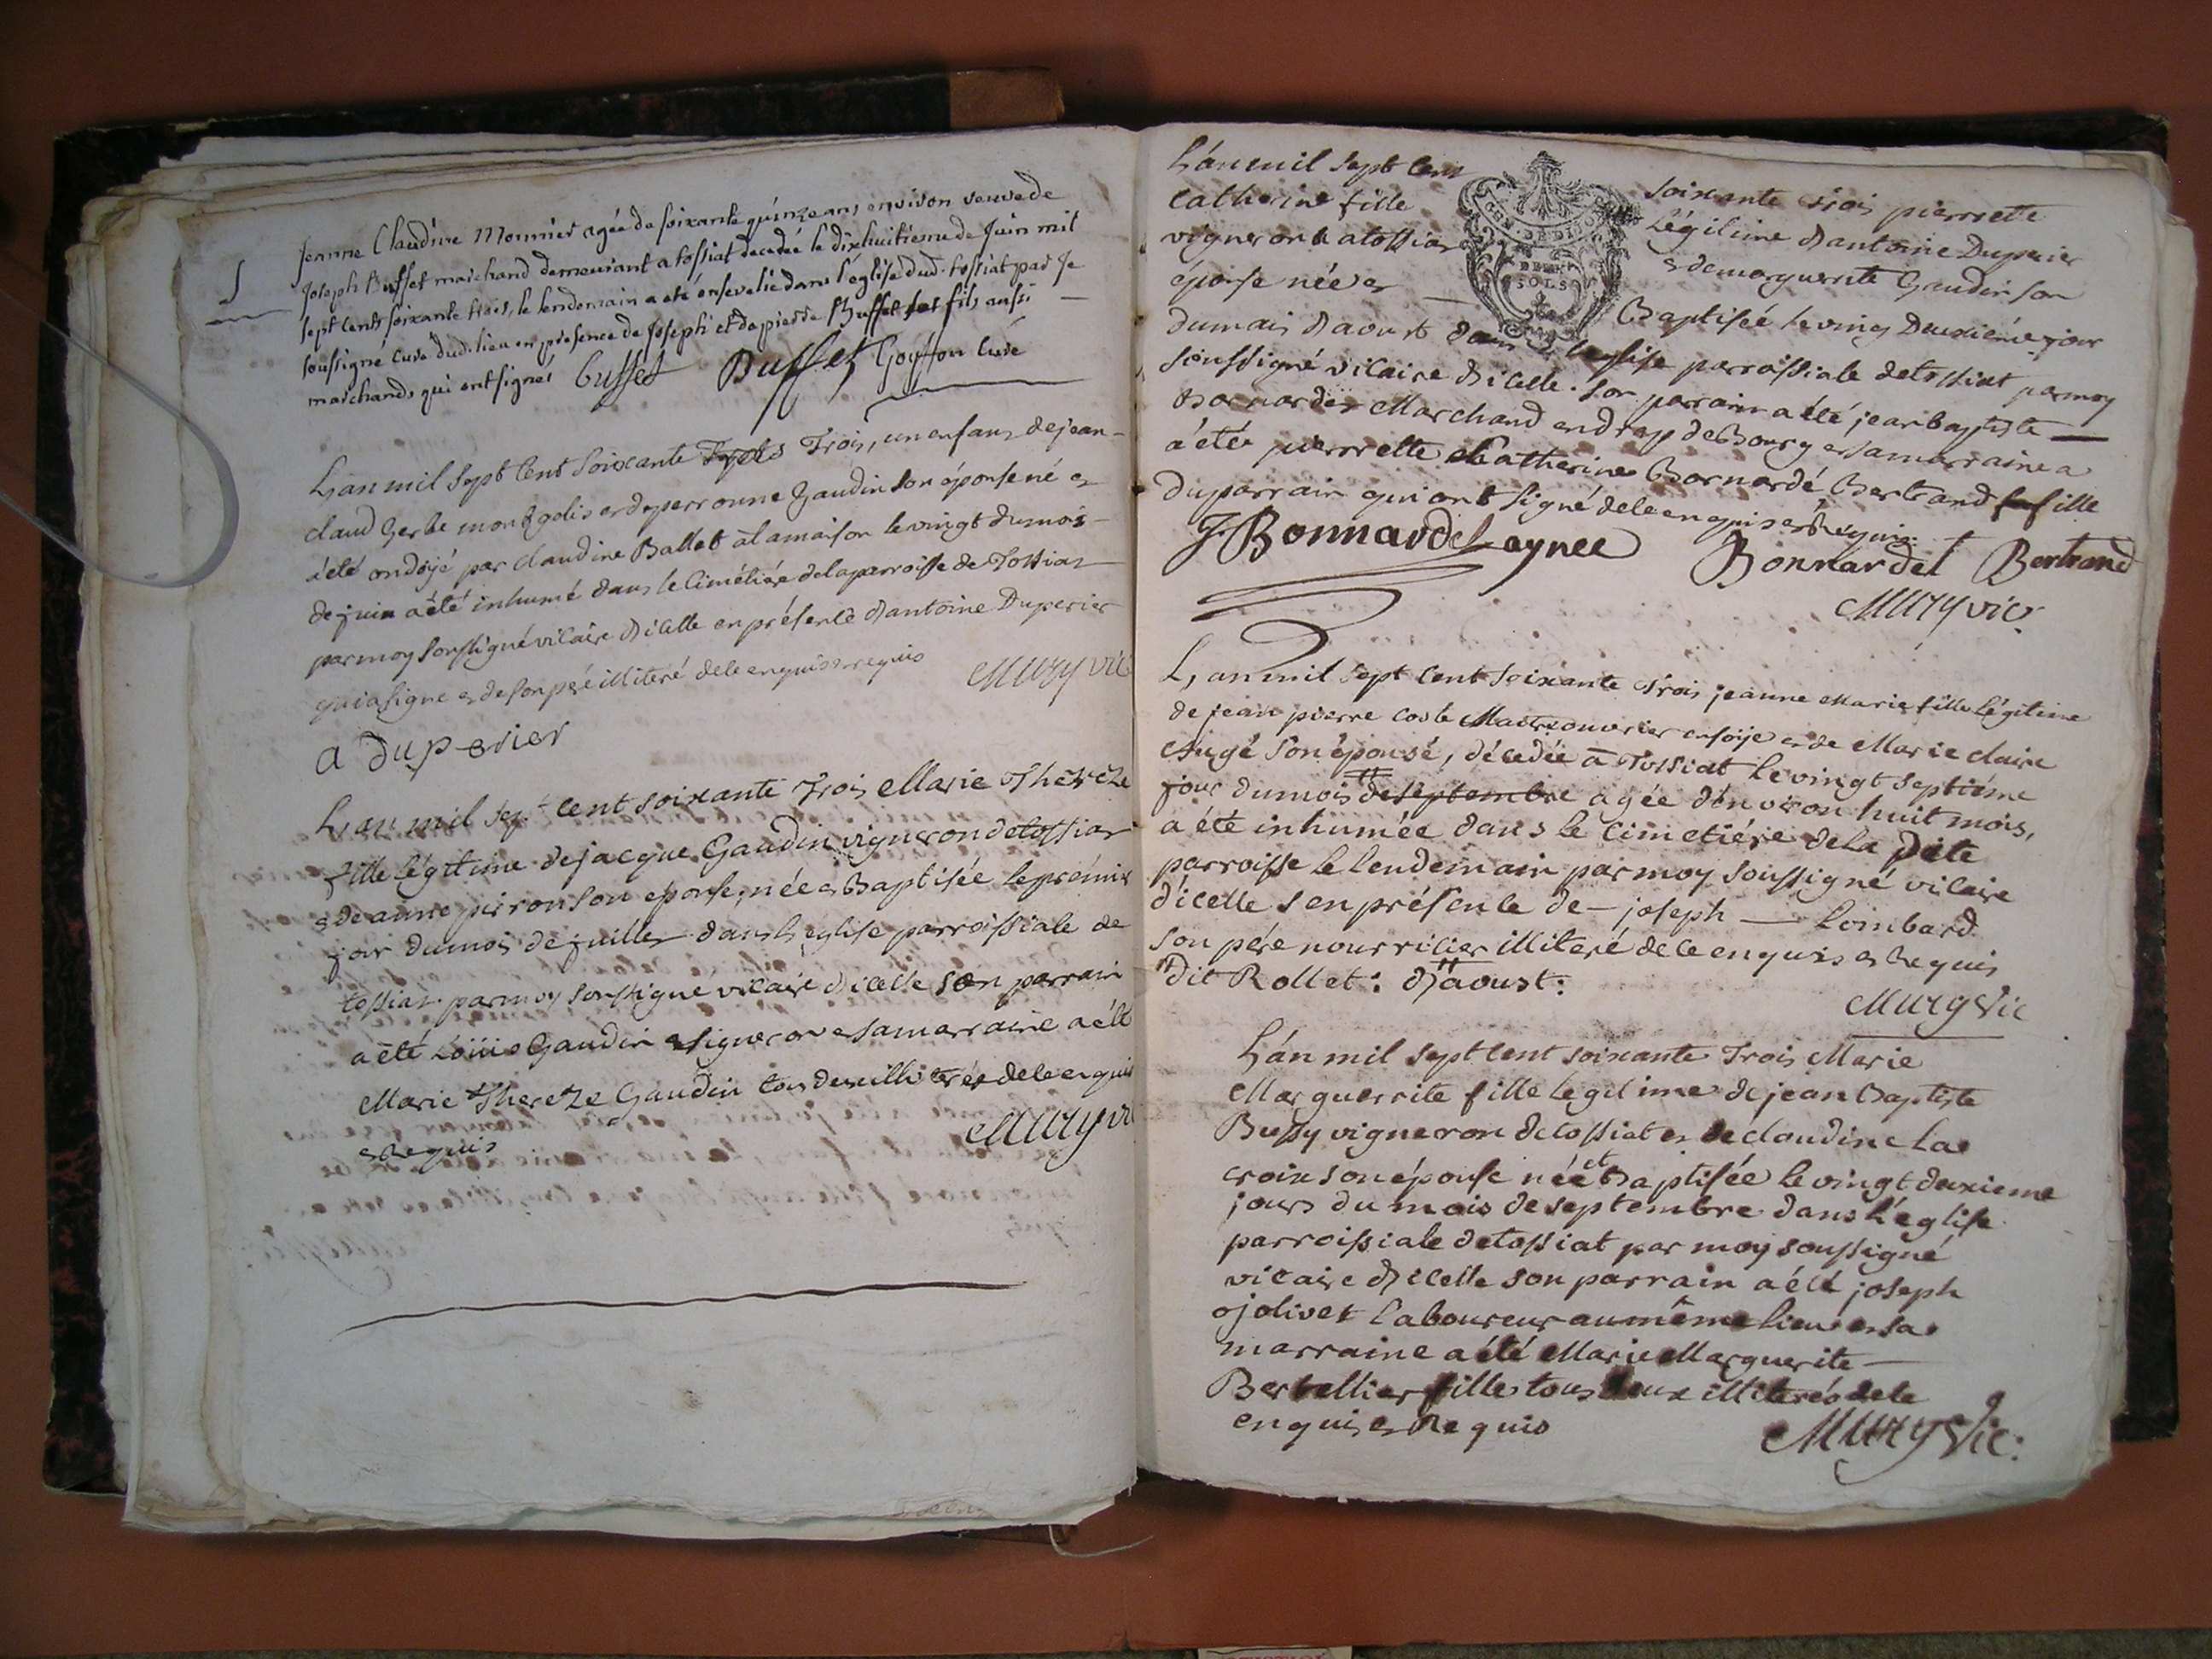 S
Jeanne Claudine Monnier agée de soixante quinze ans environ veuve de
Joseph Buffet marchand demeurant a tossiat decedée le dixhuitieme de Juin mil
sept cents soixante trois, le lendemain a eté ensevelie dans l'église dud. tossiat par Je
soussigné curé dud. lieu en présence de Joseph et de pierre Buffet ses fils aussi
marchands qui ont signés buffet Buffet Goyffon curé
L'an mil sept cent soixante Trois, un enfant de jean
claud Gerbe et de perronne Gaudin son éponse né et
a été ondojé par claudine Ballet a la maison le vingt du mois
de juin a été inhumé dans le cimétiére de la parroisse de Tossiat
par moy soussigné vicaire d'icelle en présence d'antoine Duperier
qui a signe et de son pere illiteré de ce enquis et requis Mury vic
a duperier
L'an mil sept cent soixante Trois Marie Thereze
fille légitime de jacque Gaudin vigneron de tossiat
et de anne pirron son eponse, née et Baptisée le prémier
jour du mois de juillet dans l'eglise parroissiale de
tossiat par moy soussigné vicaire d'icelle son parrain
a été Loüis Gaudin vigneron et sa marraine a été
Marie Thereze Gaudin tous deux illiterés de ce enquis
et requis Mury vic
L'an mil sept cent soixante trois pierrette
catherine fille légitime d'antoine Duperier
vigneron a tossiat et de marguerite Gaudin son
GEN. DE DIJON
DEUX SOLS
éponse née et Baptisée le vingt Deuxiéme jour
du mois d'aoust dans l'eglise parroissiale de tossiat par moy
soussigné vicaire d'icelle. son parrain a été jean baptiste
Bornardet Marchand en drap de Bourg et sa marraine a
a été pierrette Catherine Bornardé Bertrand fille
du parrain qui ont signé de ce enquis et Requis
J Bonnardel aynee Bonnardel Bertrand
Mury vic
L'an mil sept cent soixante trois jeanne Marie fille légitime
de jean pierre coste Maitre ouvrier en soije et de Marie claire
Augé son éponsé, décedée a Tossiat le vingt septiéme
jour du mois de septembre agée d'environ huit mois,
a été inhumée dans le cimetiére de la dite
parroisse le lendemain par moy soussigné vicaire
d'icelle s en présence de joseph Lombard
son pére nourricier illiteré de ce enquis et Requis
dit Rollet: d'aoust:
Mury Vic
L'an mil sept cent soixante Trois Marie
Marguerite fille legitime de jean Baptiste
Bussy vigneron de tossiat et de claudine La
croix son éponse née et Baptisée le vingt deuxieme
jours du mois de septembre dans l'eglise
parroissiale de tossiat par moy soussigné
vicaire d'icelle son parrain a été joseph
ojolivet Laboureur au même lieu et sa
marraine a été Marie Marguerite
Bertellier fille tous deux illiterés de ce
enquis et Requis Mury Vic: